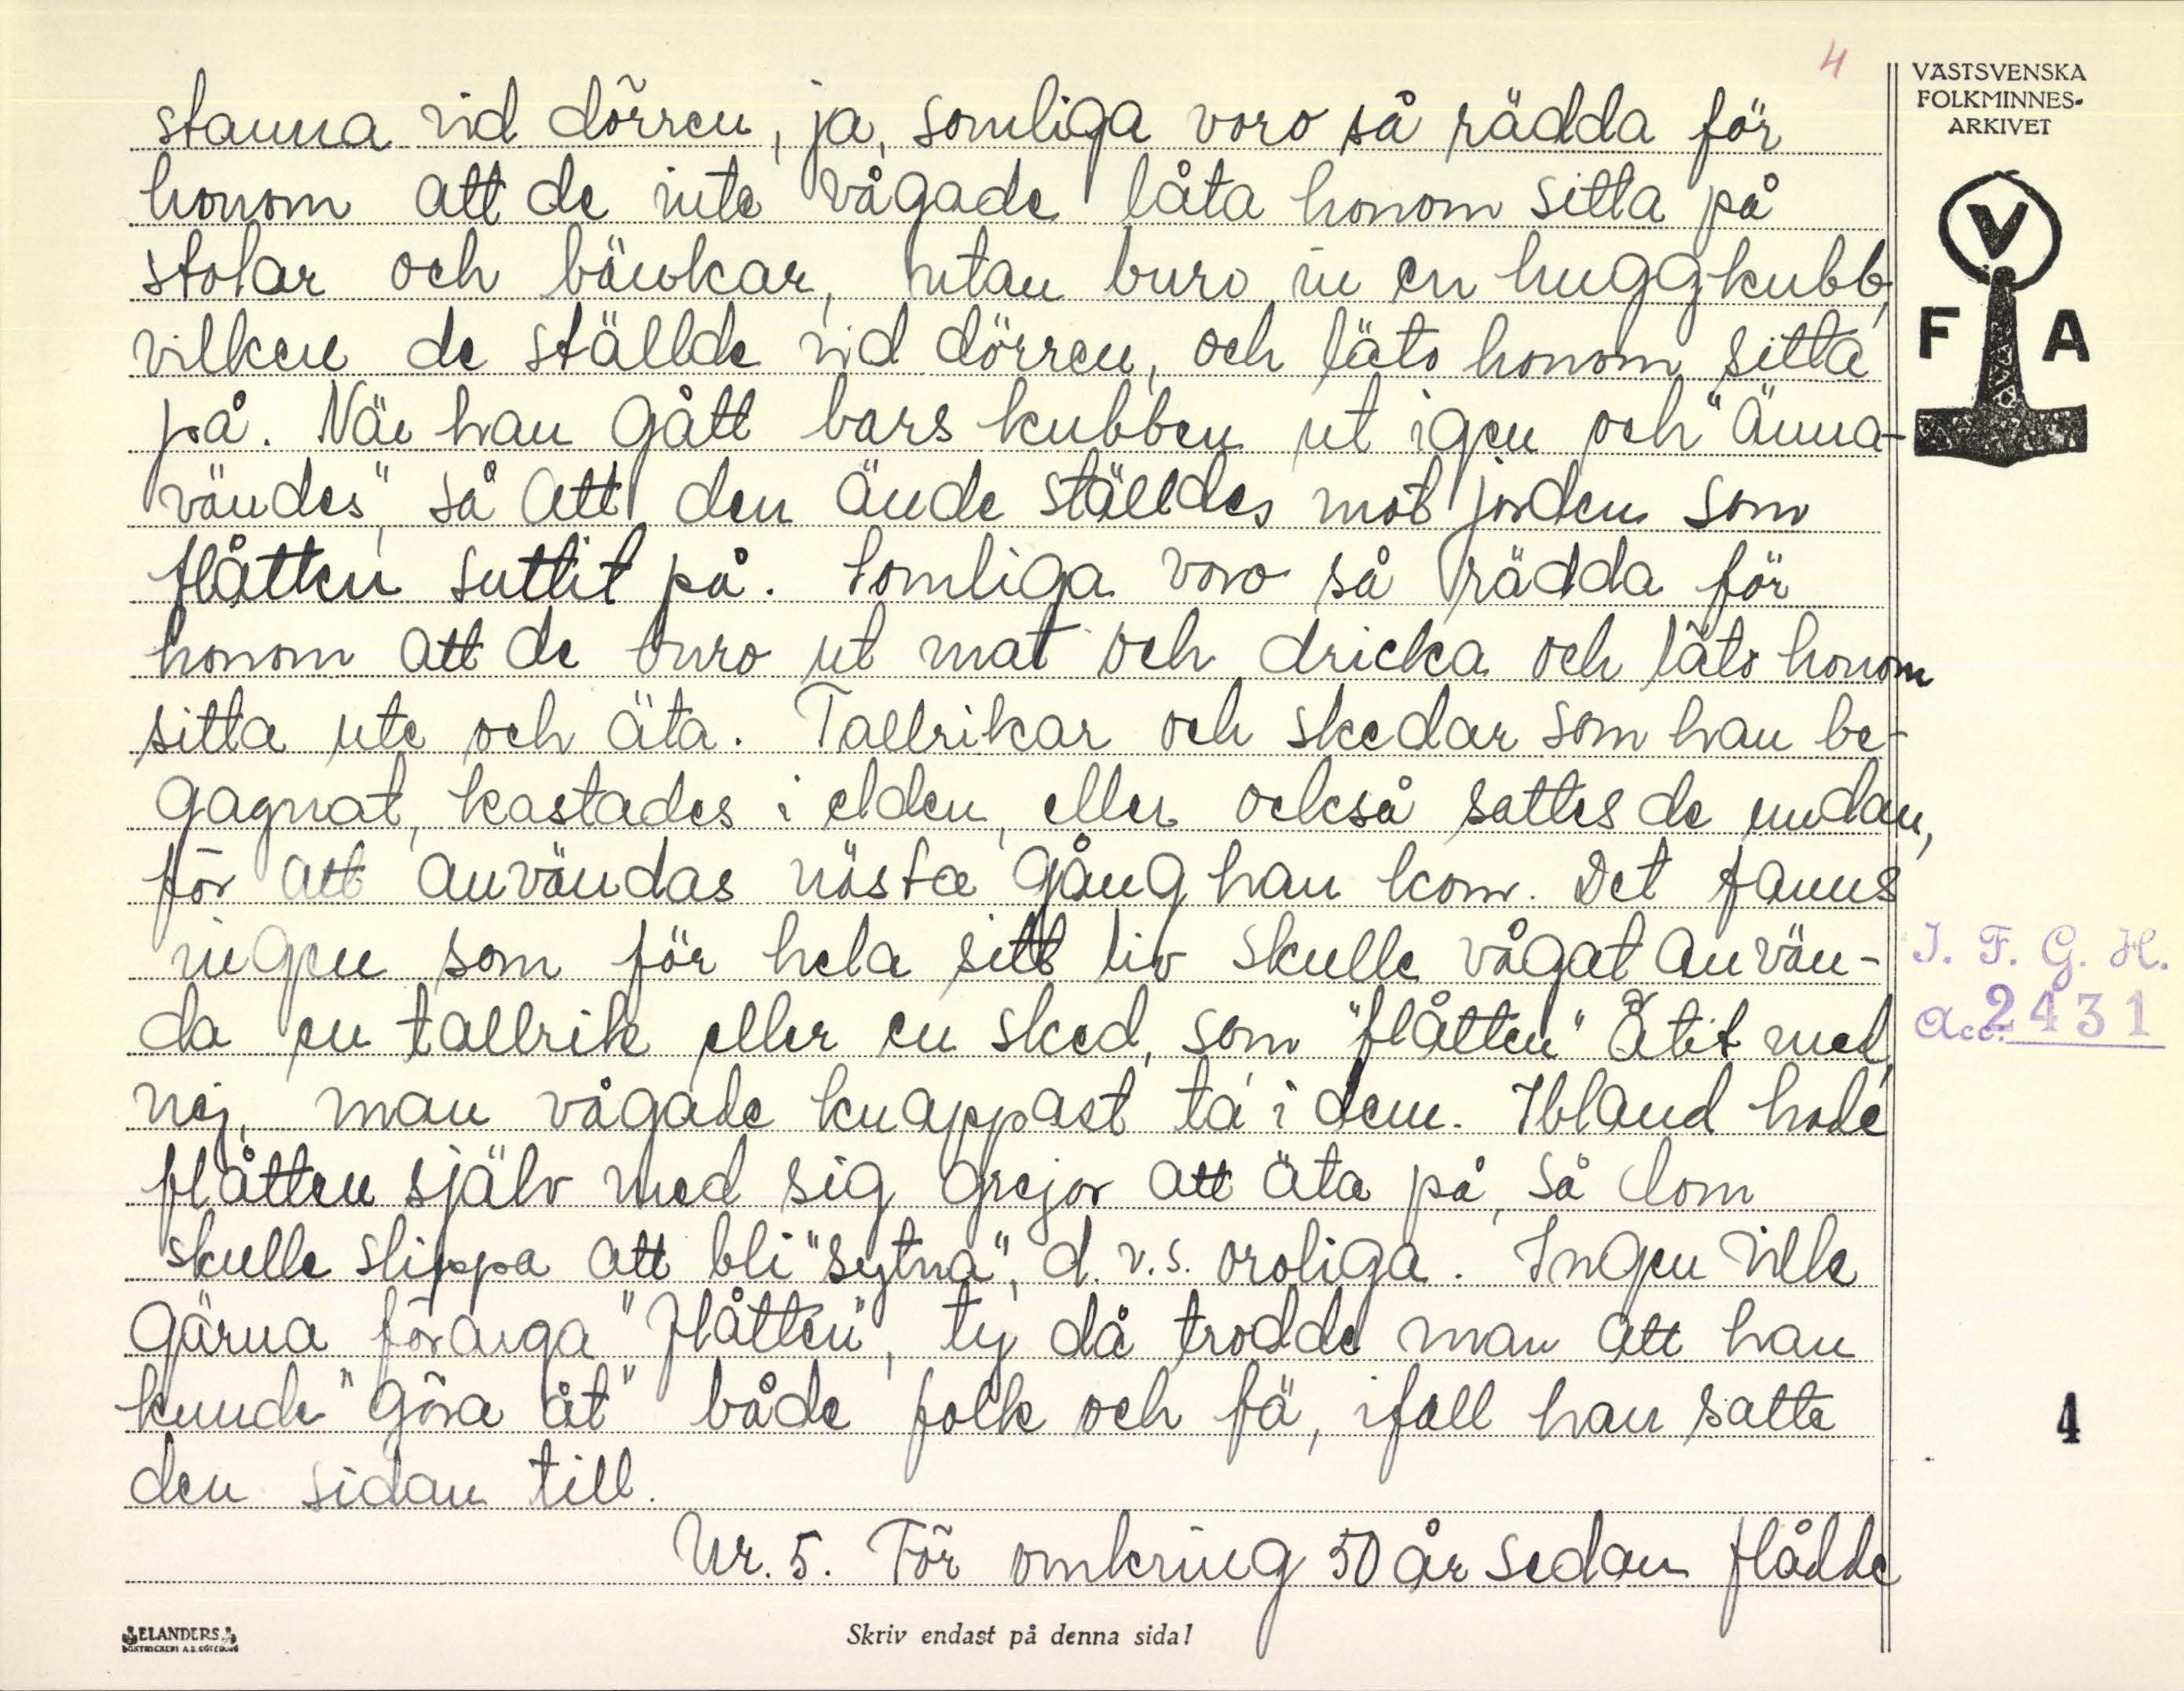 4
VÄSTSVENSKA
FOLKMINNES-
ARKIVET
V
F A
stanna vid dörren, ja, somliga voro så rädda för
honom att de inte vågade låta honom sitta på
stolar och bänkar, utan buro in en huggkubb,
vilken de ställde vid dörren, och läto honom sitta
på. När han gått bars kubben ut igen och "änna-
vändes", så att den ände ställdes mot jorden som
flåtten suttit på. Somliga voro så rädda för
honom att de buro ut mat och dricka och läto honom
sitta ute och äta. Tallrikar och skedar som han be-
gagnat, kastades i elden, eller också sattes de undan,
för att användas nästa gång han kom. Det fanns
ingen som för hela sitt liv skulle vågat använ-
da en tallrik eller en sked, som "flåtten" ätit med,
nej, man vågade knappast ta' i dem. Ibland hade
flåtten själv med sig grejor att äta på, så dom
skulle slippa att bli "sytna", d.v.s. oroliga. Ingen ville
gärna förarga "flåtten", ty då trodde man att han
kunde "göra åt" både folk och fä, ifall han satte
den sidan till.
Nr. 5. För omkring 50 år sedan flådde
I. F. G. H.
Acc. 2431
4
ELANDERS
BOKTRYCKERI A.B. GÖTEBORG
Skriv endast på denna sida!